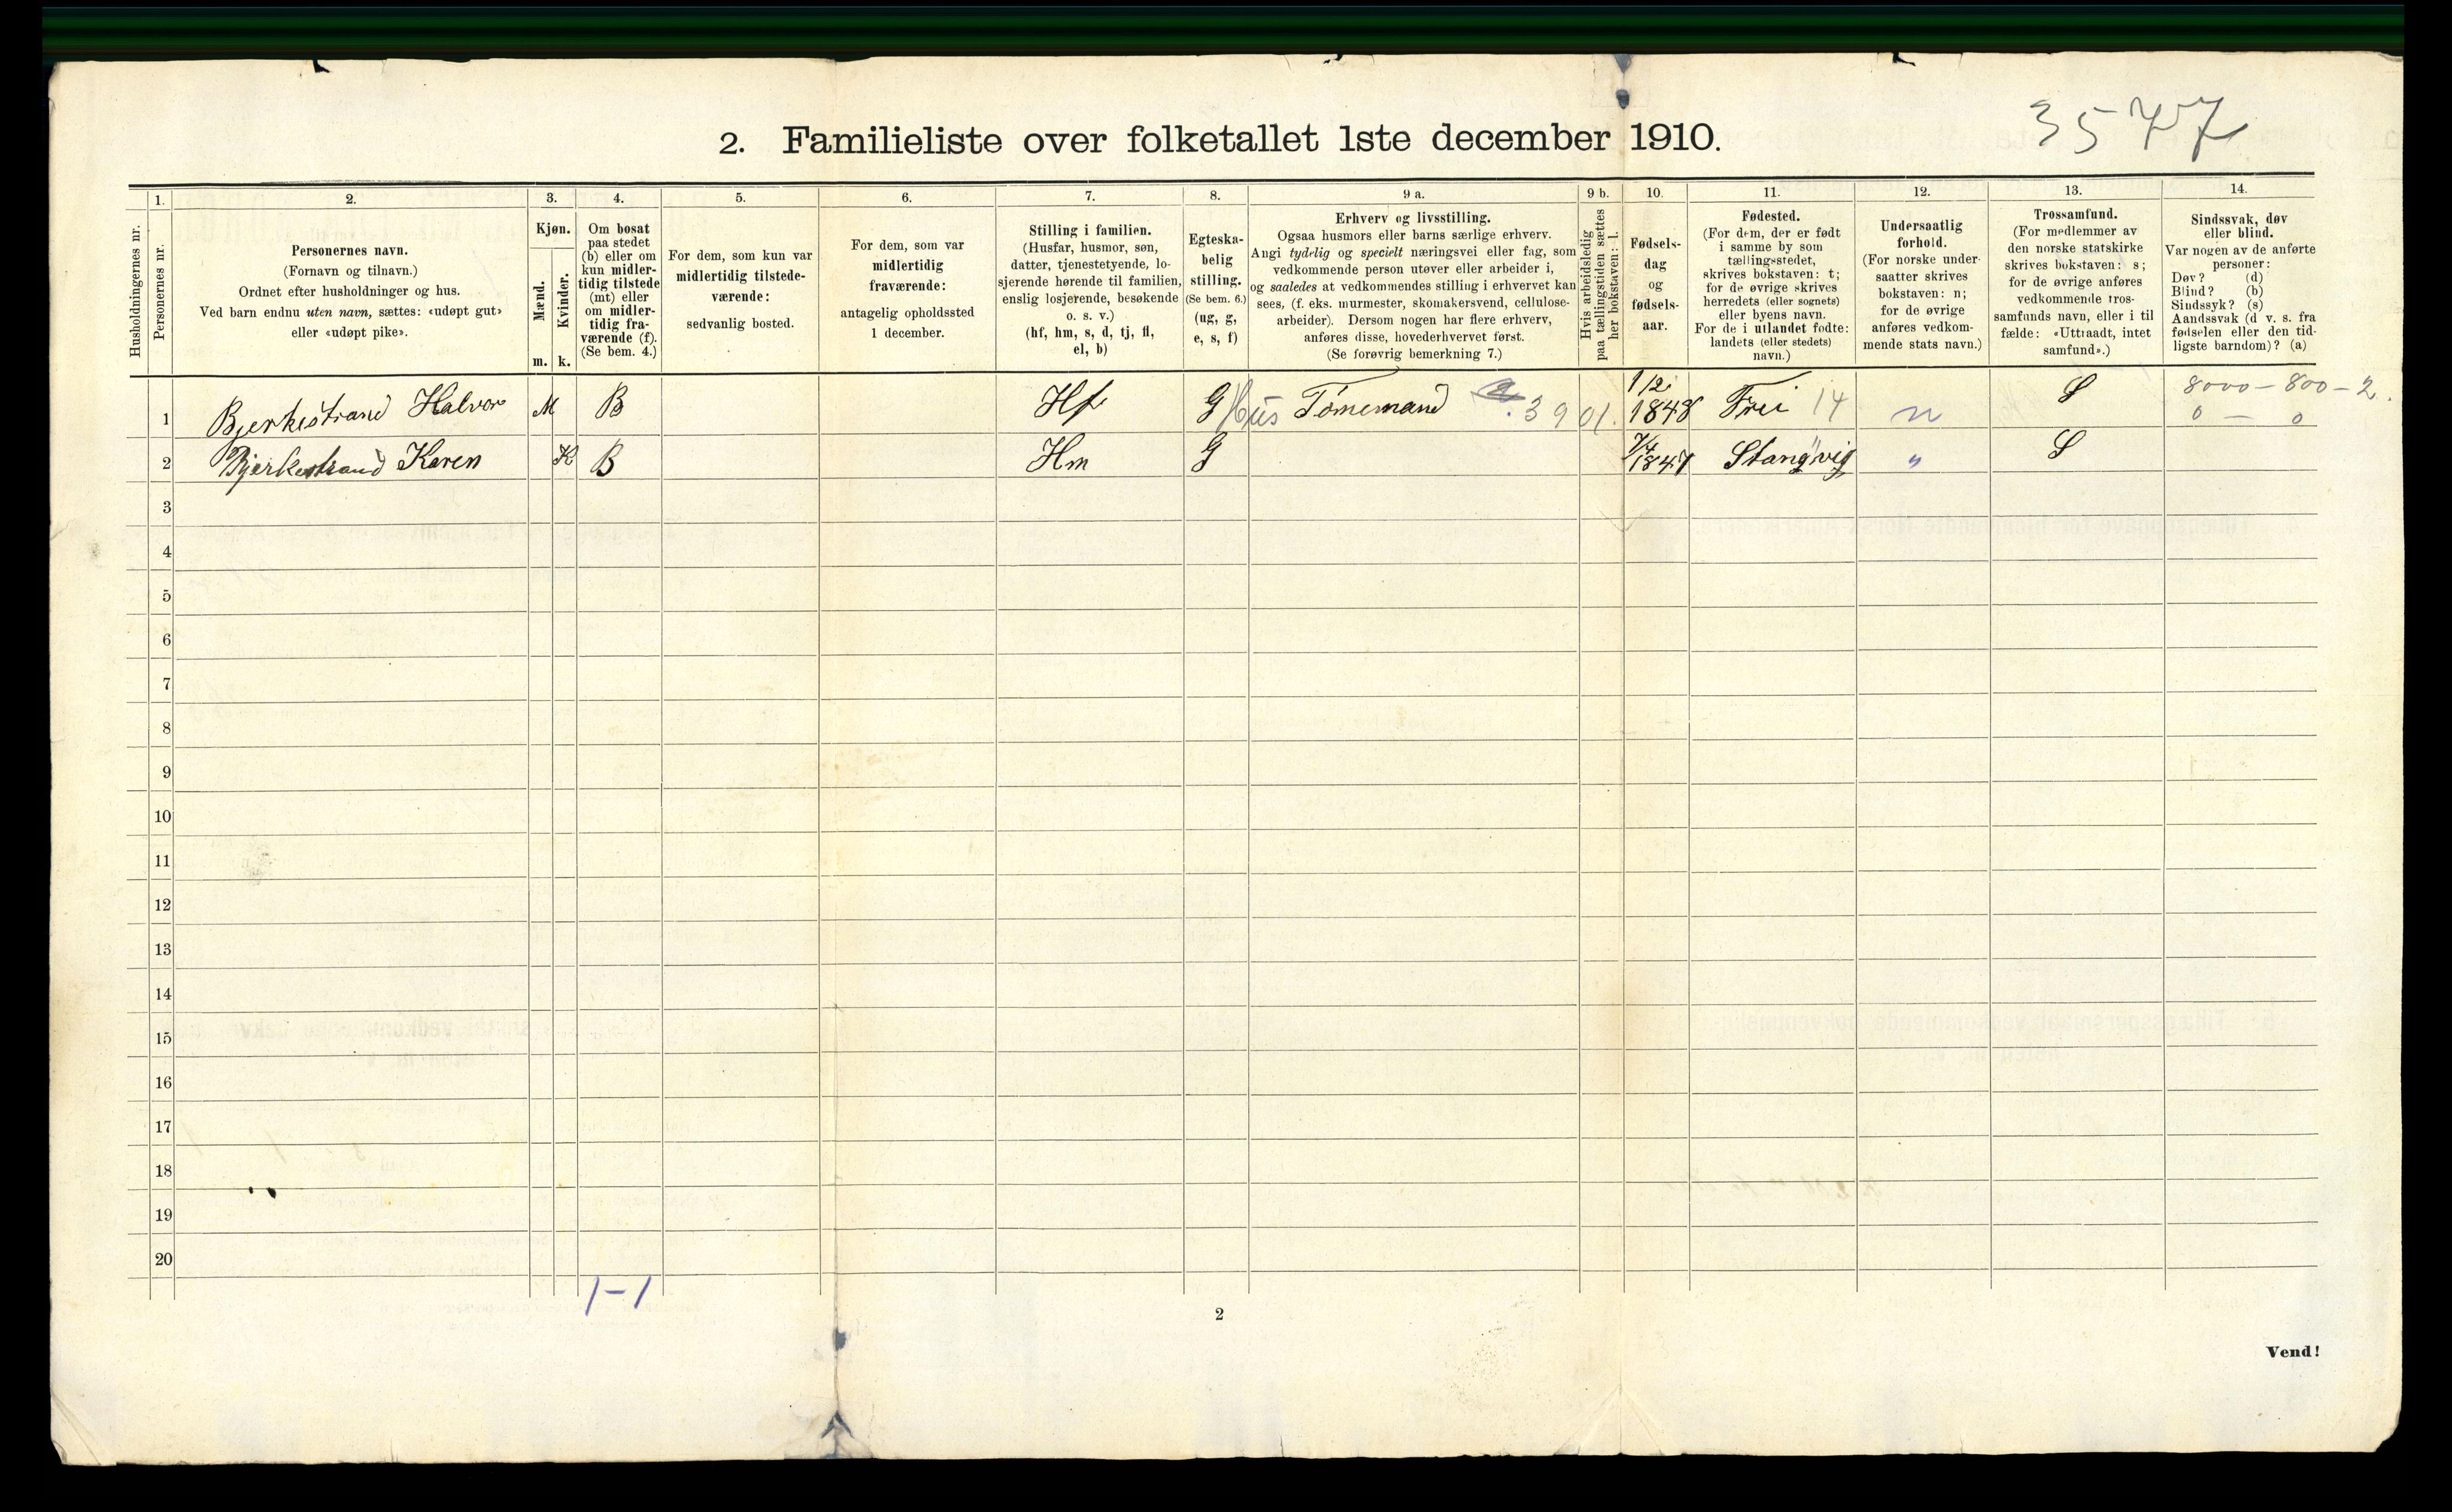 3577
2. Familieliste over folketallet 1ste december 1910.
Husholdningernes nr.
1.
Personernes nr.
2.
Personernes navn.
(Fornavn og tilnavn.)
Ordnet efter husholdninger og hus.
Ved barn endnu uten navn, sættes: «udøpt gut»
eller «udøpt pike».
3.
Kjøn.
Mænd.
Kvinder.
m. k.
4.
Om bosat
paa stedet
(b) eller om
kun midler-
tidig tilstede
(mt) eller
om midler-
tidig fra-
værende (f).
(Se bem. 4.)
5.
For dem, som kun var
midlertidig tilstede-
værende:
sedvanlig bosted.
6.
For dem, som var
midlertidig
fraværende:
antagelig opholdssted
1 december.
7.
Stilling i familien.
(Husfar, husmor, søn,
datter, tjenestetyende, lo-
sjerende hørende til familien,
enslig losjerende, besøkende
o. s. v.)
(hf, hm, s, d, tj, fl,
el, b)
8.
Egteska-
belig
stilling.
(Se bem. 6.)
(ug, g,
e, s, f)
9 a.
Erhverv og livsstilling.
Ogsaa husmors eller barns særlige erhverv.
Angi tydelig og specielt næringsvei eller fag, som
vedkommende person utøver eller arbeider i,
og saaledes at vedkommendes stilling i erhvervet kan
sees, (f. eks. murmester, skomakersvend, cellulose-
arbeider). Dersom nogen har flere erhverv,
anføres disse, hovederhvervet først.
(Se forøvrig bemerkning 7.)
9 b.
Hvis arbeidsledig
paa tællingstiden sættes
her bokstaven: l.
10.
Fødsels-
dag
og
fødsels-
aar.
11.
Fødested.
(For dem, der er født
i samme by som
tællingsstedet,
skrives bokstaven: t;
for de øvrige skrives
herredets (eller sognets)
eller byens navn.
For de i utlandet fødte:
landets (eller stedets)
navn.)
12.
Undersaatlig
forhold.
(For norske under-
saatter skrives
bokstaven: n;
for de øvrige
anføres vedkom-
mende stats navn.)
13.
Trossamfund.
(For medlemmer av
den norske statskirke
skrives bokstaven: s;
for de øvrige anføres
vedkommende tros-
samfunds navn, eller i til
fælde: «Uttraadt, intet
samfund».)
14.
Sindssvak, døv
eller blind.
Var nogen av de anførte
personer:
Døv? (d)
Blind? (b)
Sindssyk? (s)
Aandssvak (d v. s. fra
fødselen eller den tid-
ligste barndom)? (a)
1 Bjerkestrand Halvor M B Hf G Hus Tømemand .3901. 1/2 1848 Frei 14 n S 8000 - 800 - 2.
0 - 0
2 Bjerkestrand Karen K B Hm G 7/4 1847 Stangvig " S
3
4
5
6
7
8
9
10
11
12
13
14
15
16
17
18
19
20
1-1
2
Vend!